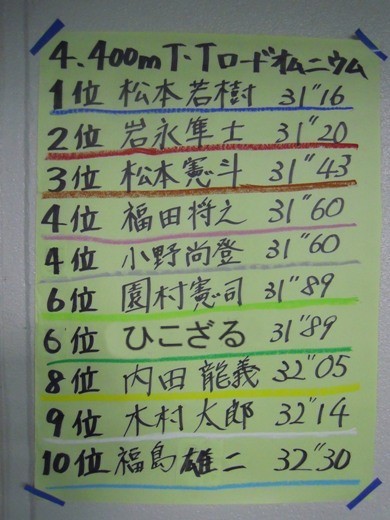 4.400m T.Tロードオムニウム
1位 松本若樹 31"16
2位 岩永隼士 31"20
3位 松本憲斗 31"43
4位 福田将之 31"60
4位 小野尚登 31"60
6位 園村憲司 31"89
6位 ひこざる 31"89
8位 内田龍義 32"05
9位 木村太郎 32"14
10位 福島雄二 32"30